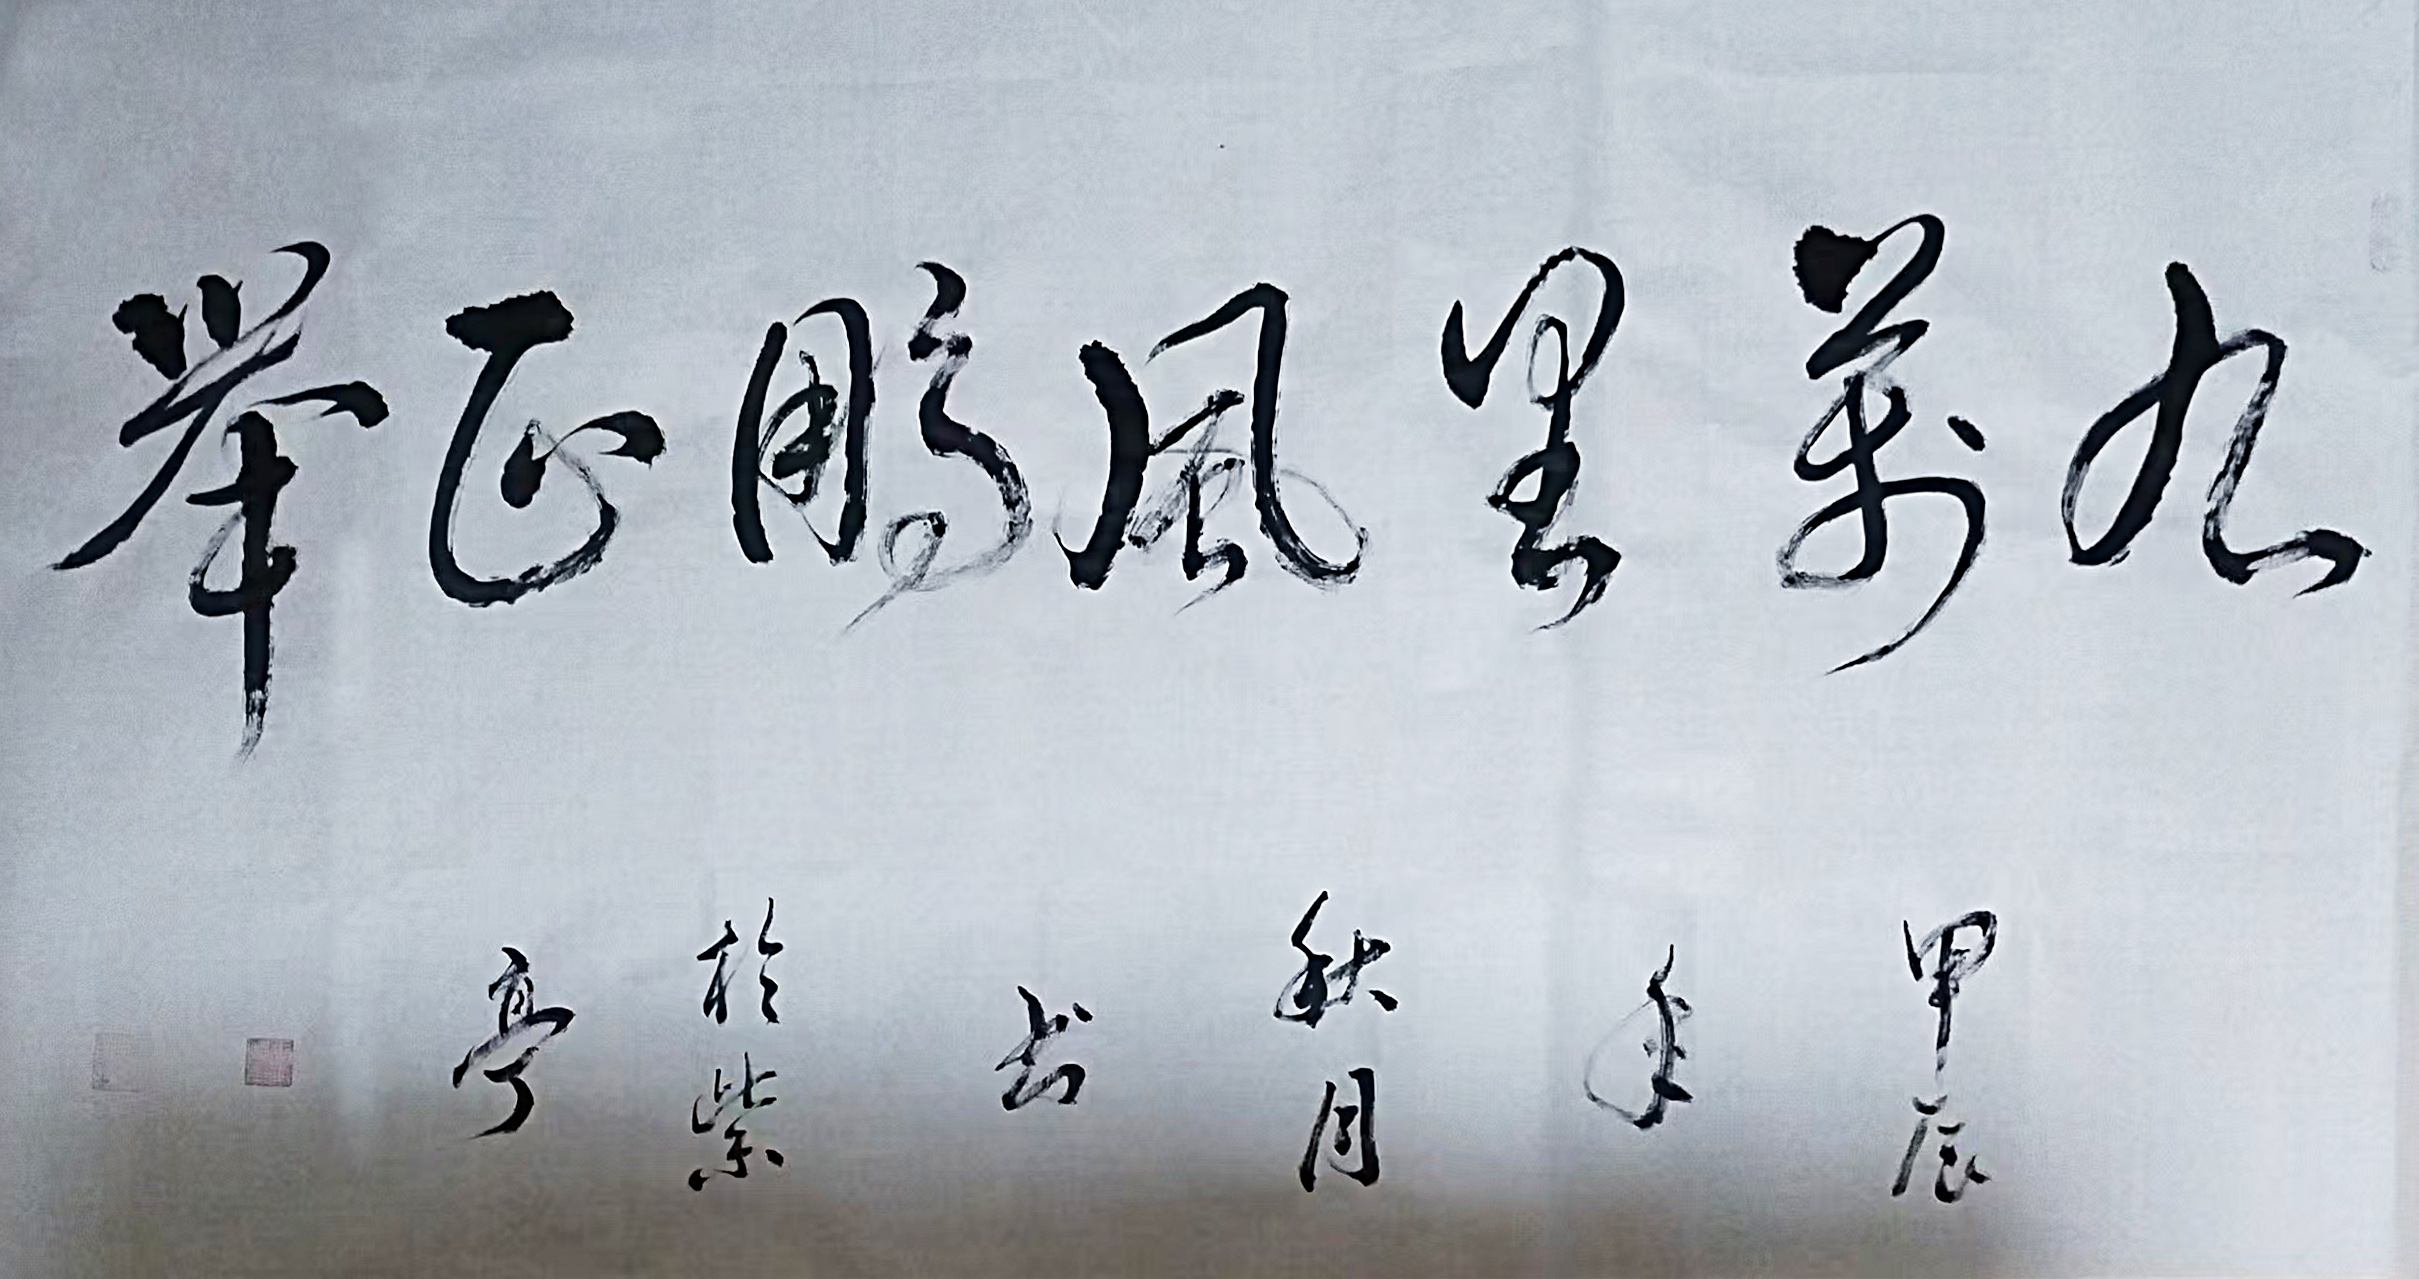 九萬里風鵬正舉
甲辰
年
秋月
书
於紫
亭